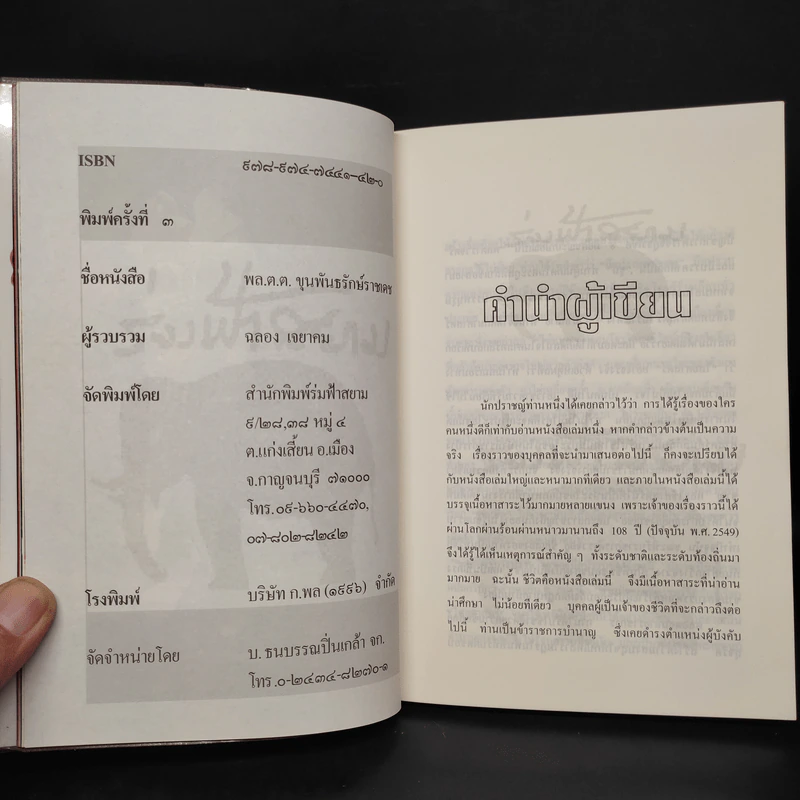 ISBN ๙๗๘-๙๗๔-๗๔๔๑-๔๒-๐
พิมพ์ครั้งที่ ๓
ชื่อหนังสือ พล.ต.ต. ขุนพันธรักษ์ราชเดช
ผู้รวบรวม ฉลอง เจยาคม
จัดพิมพ์โดย สำนักพิมพ์ร่มฟ้าสยาม
๙/๒๘,๓๘ หมู่ ๔
ต.แก่งเสี้ยน อ.เมือง
จ.กาญจนบุรี ๗๑๐๐๐
โทร.๐๙-๖๖๐-๔๔๗๐,
๐๗-๘๐๒-๘๒๔๒
โรงพิมพ์ บริษัท ก.พล (๑๙๙๖) จำกัด
จัดจำหน่ายโดย บ. ธนบรรณปิ่นเกล้า จก.
โทร.๐-๒๔๓๔-๘๒๗๐-๑
คำนำผู้เขียน
นักปราชญ์ท่านหนึ่งได้เคยกล่าวไว้ว่า การได้รู้เรื่องของใคร
คนหนึ่งดีก็เท่ากับอ่านหนังสือเล่มหนึ่ง หากคำกล่าวข้างต้นเป็นความ
จริง เรื่องราวของบุคคลที่จะนำมาเสนอต่อไปนี้ ก็คงจะเปรียบได้
กับหนังสือเล่มใหญ่และหนามากทีเดียว และภายในหนังสือเล่มนี้ได้
บรรจุเนื้อหาสาระไว้มากมายหลายแขนง เพราะเจ้าของเรื่องราวนี้ได้
ผ่านโลกผ่านร้อนผ่านหนาวมานานถึง 108 ปี (ปัจจุบัน พ.ศ. 2549)
จึงได้รู้ได้เห็นเหตุการณ์สำคัญ ๆ ทั้งระดับชาติและระดับท้องถิ่นมา
มากมาย ฉะนั้น ชีวิตคือหนังสือเล่มนี้ จึงมีเนื้อหาสาระที่น่าอ่าน
น่าศึกษา ไม่น้อยทีเดียว บุคคลผู้เป็นเจ้าของชีวิตที่จะกล่าวถึงต่อ
ไปนี้ ท่านเป็นข้าราชการบำนาญ ซึ่งเคยดำรงตำแหน่งผู้บังคับ